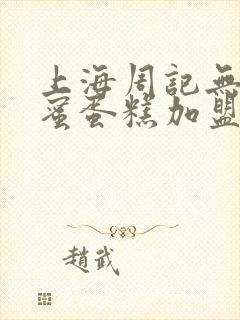 上海周記無
蜜蛋糕加盟
趙武